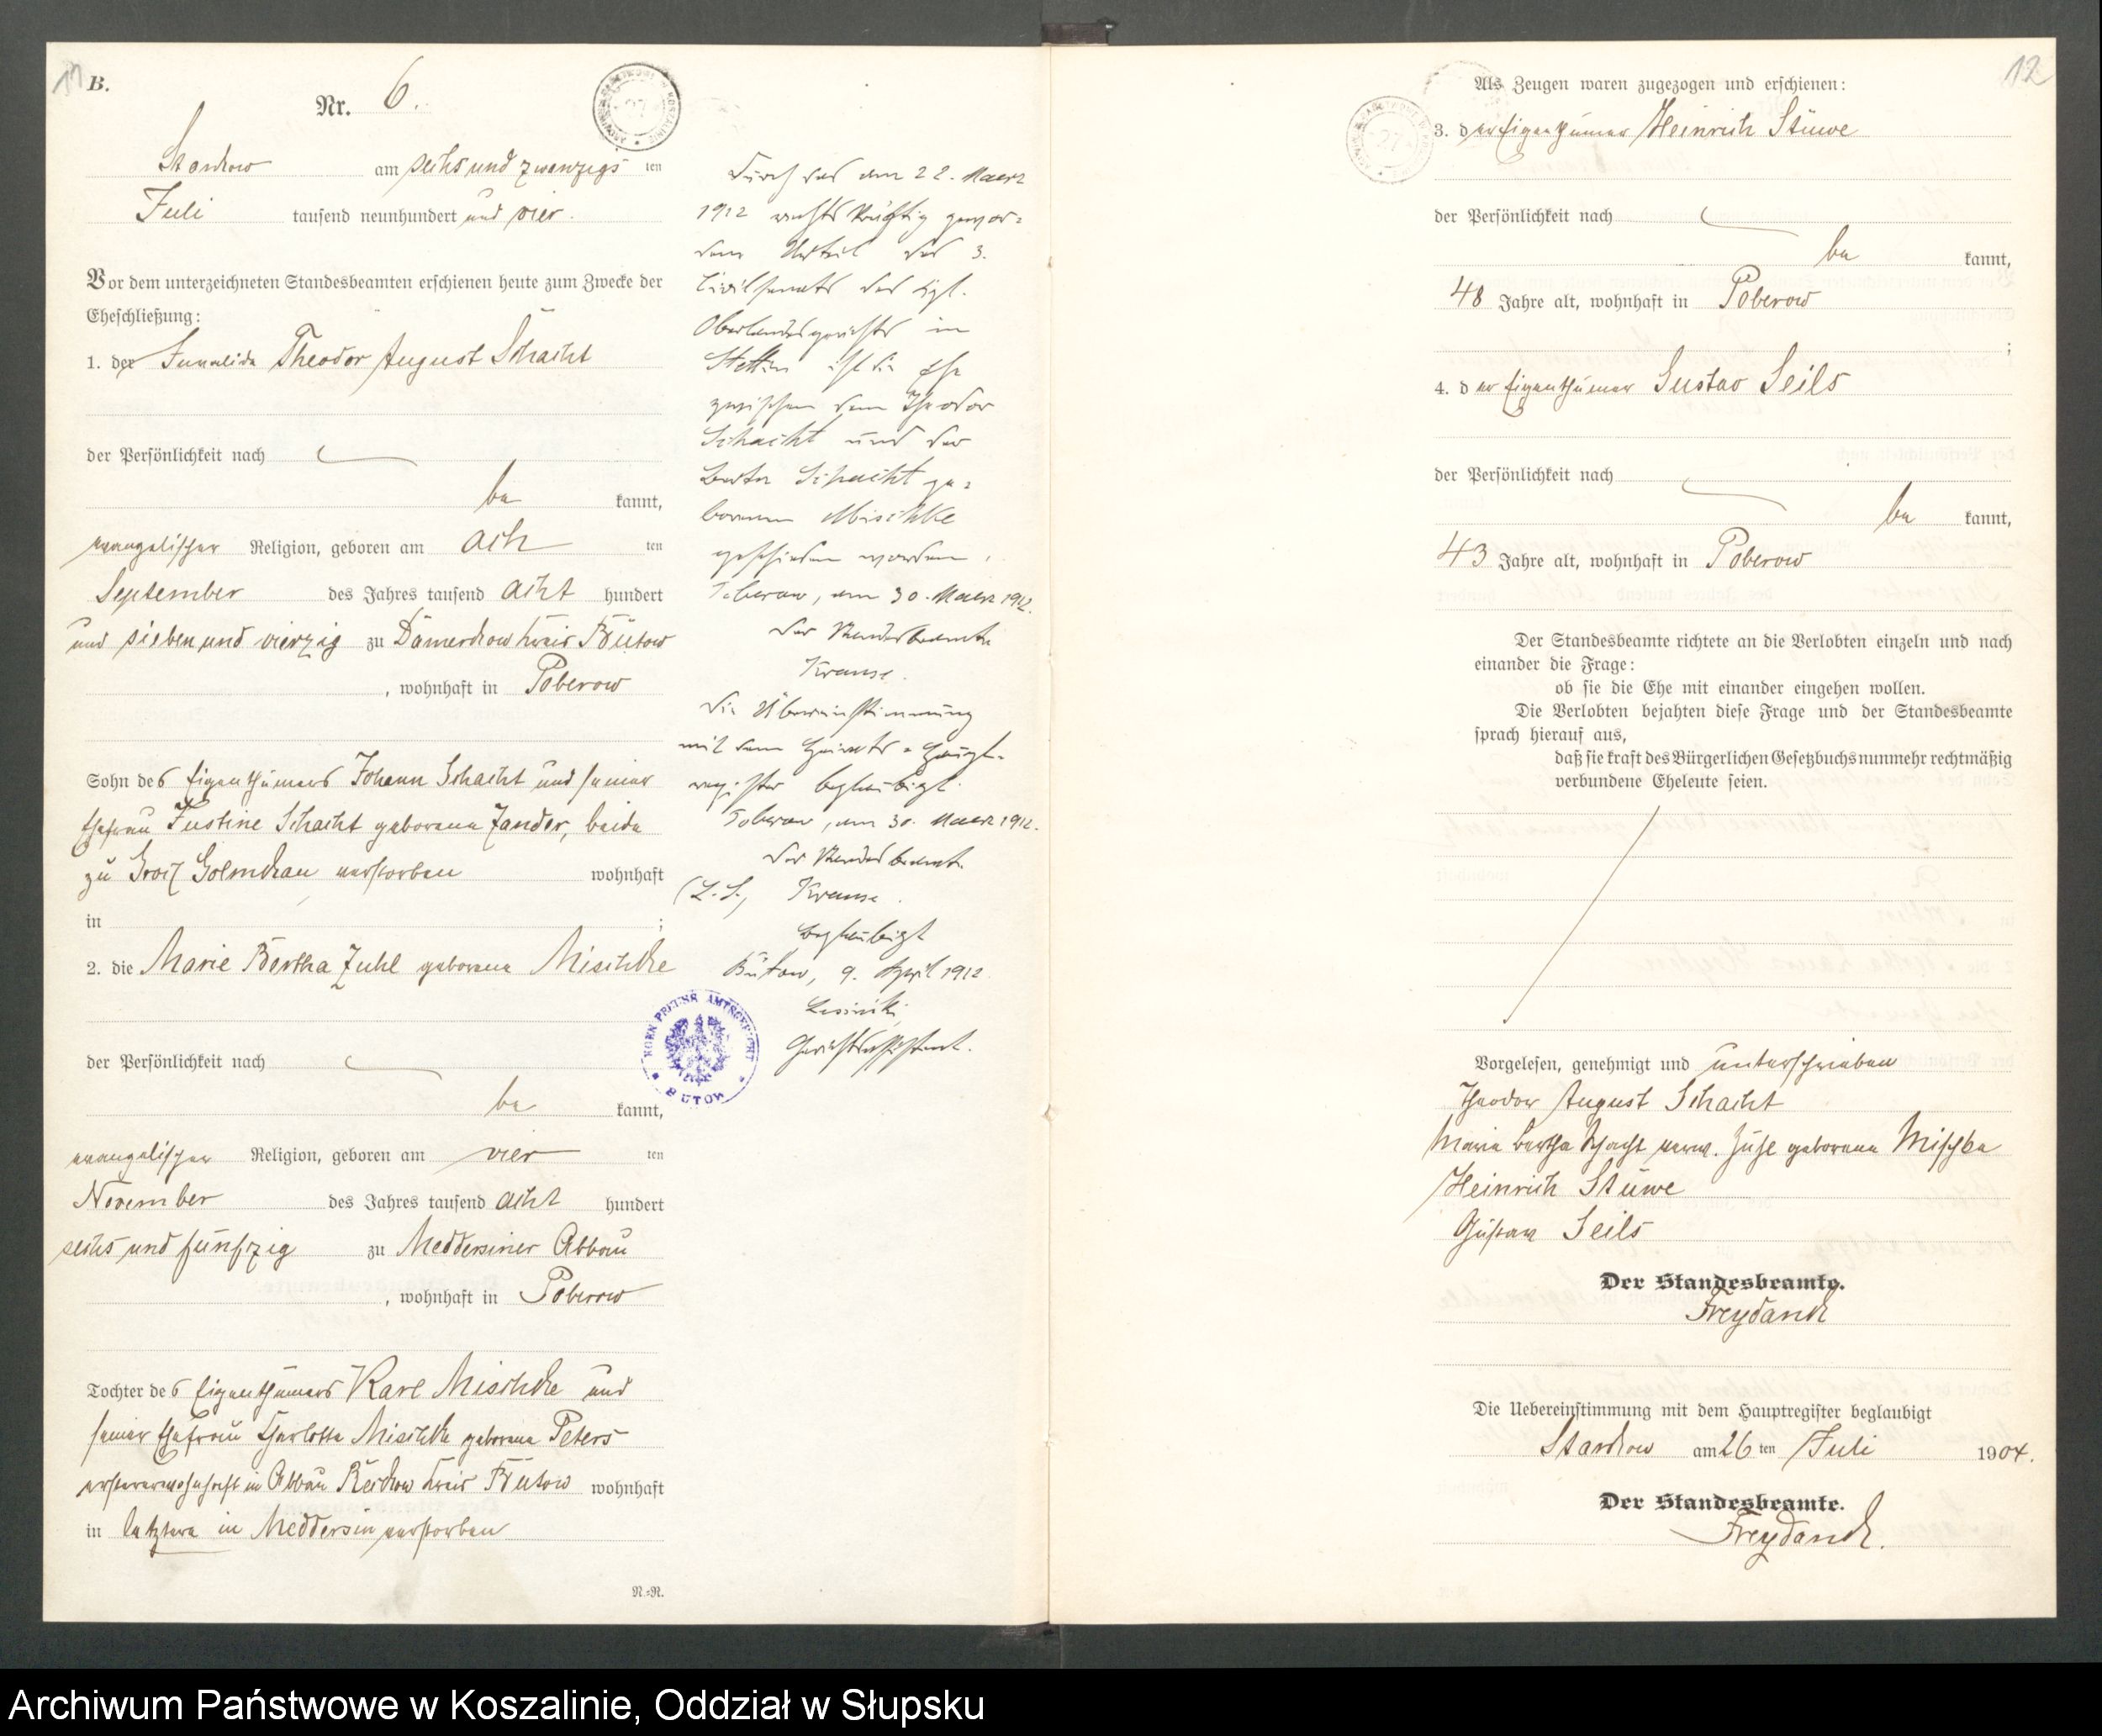 B.
Nr. 6.
Starkow am sechs und zwanzigs ten
Juli tausend neunhundert und vier.
Vor dem unterzeichneten Standesbeamten erschienen heute zum Zwecke der
Eheschließung:
1. der Invalide Theodor August Schacht
der Persönlichkeit nach
be kannt,
evangelischer Religion, geboren am ach ten
September des Jahres tausend acht hundert
und sieben und vierzig zu Damerkow Kreis Bütow
, wohnhaft in Poberow
Sohn des Eigenthümers Johann Schacht und seiner
Ehefrau Justine Schacht geborene Zander, beide
zu Groß verstorben wohnhaft
in ;
2. die Marie Bertha Zuhl geborene Mischke
der Persönlichkeit nach
be kannt,
evangelischer Religion, geboren am vier ten
November des Jahres tausend acht hundert
sechs und fünfzig zu Meddersiner Abbau
, wohnhaft in Poberow
Tochter des Eigenthümers Karl Mischke und
seiner Ehefrau Charlotte Mischke geborene Peters
ersterer wohnhaft in Abbau Reckow Kreis Bütow wohnhaft
in letztere in Meddersin verstorben
N.=N.
Durch das am 22. Maerz
1912 rechtskräftig gewor=
dene Urteil des 3.
Civilsenats des Kgl.
Oberlandesgerichts in
Stettin ist die Ehe
zwischen dem Theodor
Schacht und der
Berta Schacht ge=
borenen Mischke
geschieden worden.
Poberow, am 30. Maerz 1912.
Der Standesbeamte
Krause.
Die Übereinstimmung
mit dem Heirats=Haupt=
register beglaubigt.
Poberow, am 30. Maerz 1912.
Der Standesbeamte
(L.S.) Krause.
Beglaubigt
Bütow, 9. April 1912.
Gerichtsassistent.
KOEN. PREUSS. AMTSGERICHT
* BÜTOW *
12
Als Zeugen waren zugezogen und erschienen:
3. der Eigenthümer Heinrich Stüwe
der Persönlichkeit nach
be kannt,
48 Jahre alt, wohnhaft in Poberow
;
4. der Eigenthümer Gustav Seils
der Persönlichkeit nach
be kannt,
43 Jahre alt, wohnhaft in Poberow
Der Standesbeamte richtete an die Verlobten einzeln und nach
einander die Frage:
ob sie die Ehe mit einander eingehen wollen.
Die Verlobten bejahten diese Frage und der Standesbeamte
sprach hierauf aus,
daß sie kraft des Bürgerlichen Gesetzbuchs nunmehr rechtmäßig
verbundene Eheleute seien.
Vorgelesen, genehmigt und unterschrieben
Theodor August Schacht
Marie Bertha Schacht verw. Zuhl geborene Mischke
Heinrich Stüwe
Gustav Seils
Der Standesbeamte.
Freydanck
Die Uebereinstimmung mit dem Hauptregister beglaubigt
Starkow am 26 ten Juli 1904.
Der Standesbeamte.
Freydanck.
Archiwum Państwowe w Koszalinie, Oddział w Słupsku